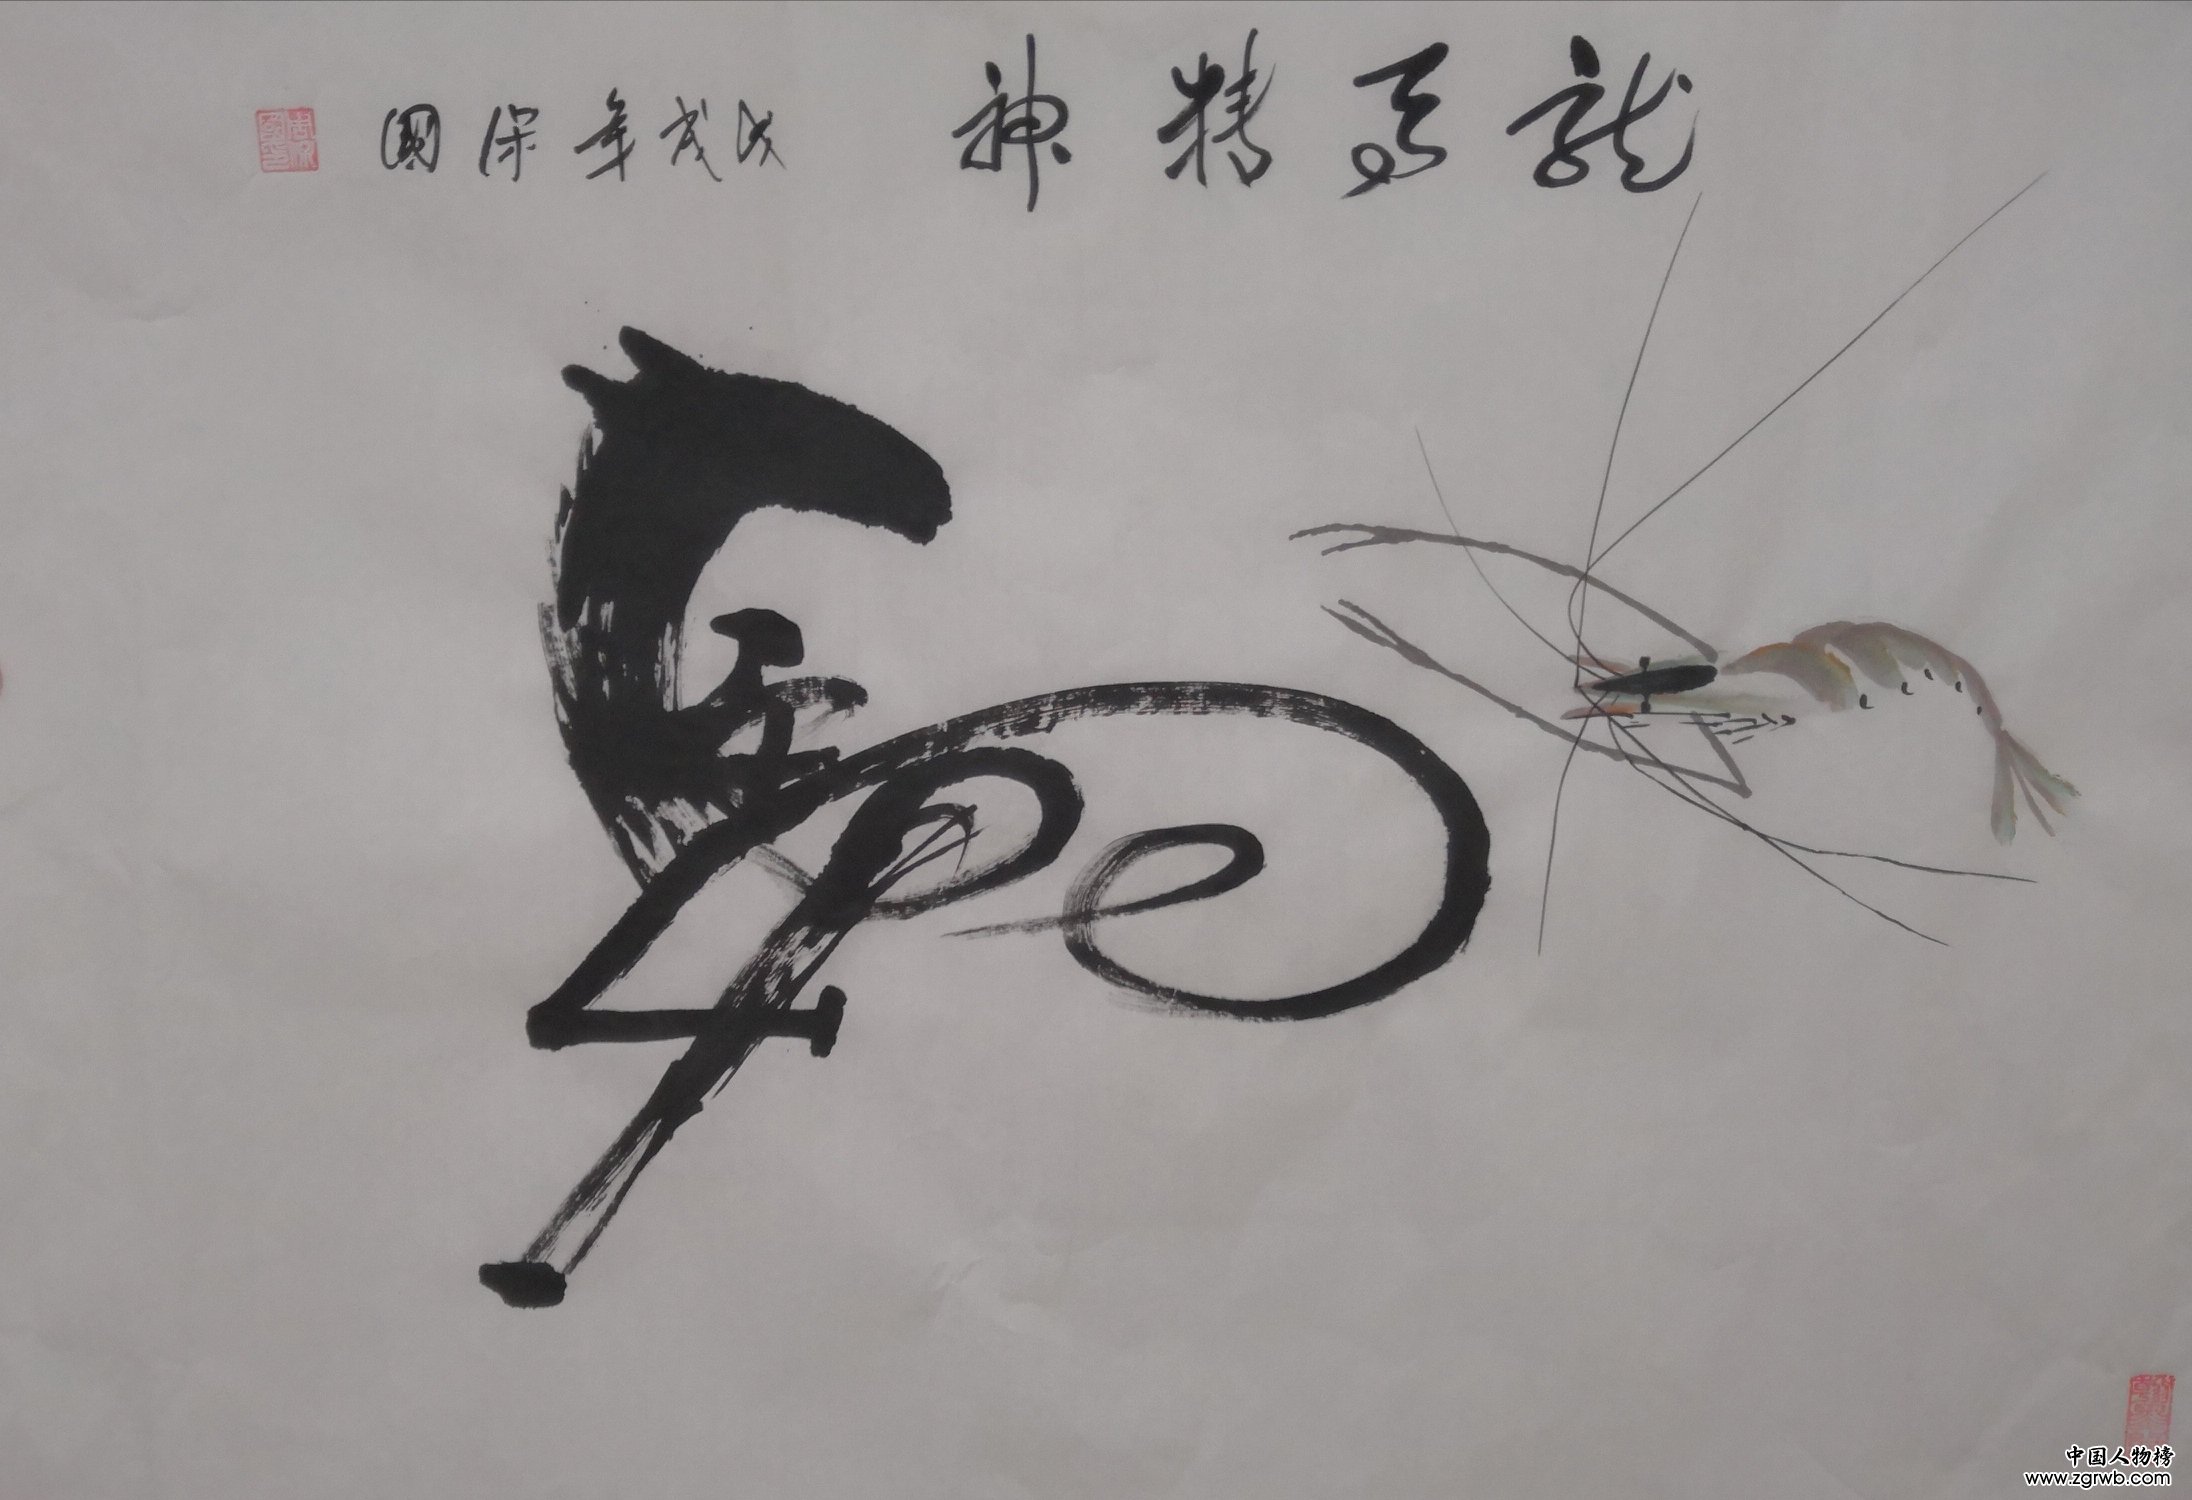 龍马精神 戊戌年保國
中国人物榜
www.zgrwb.com